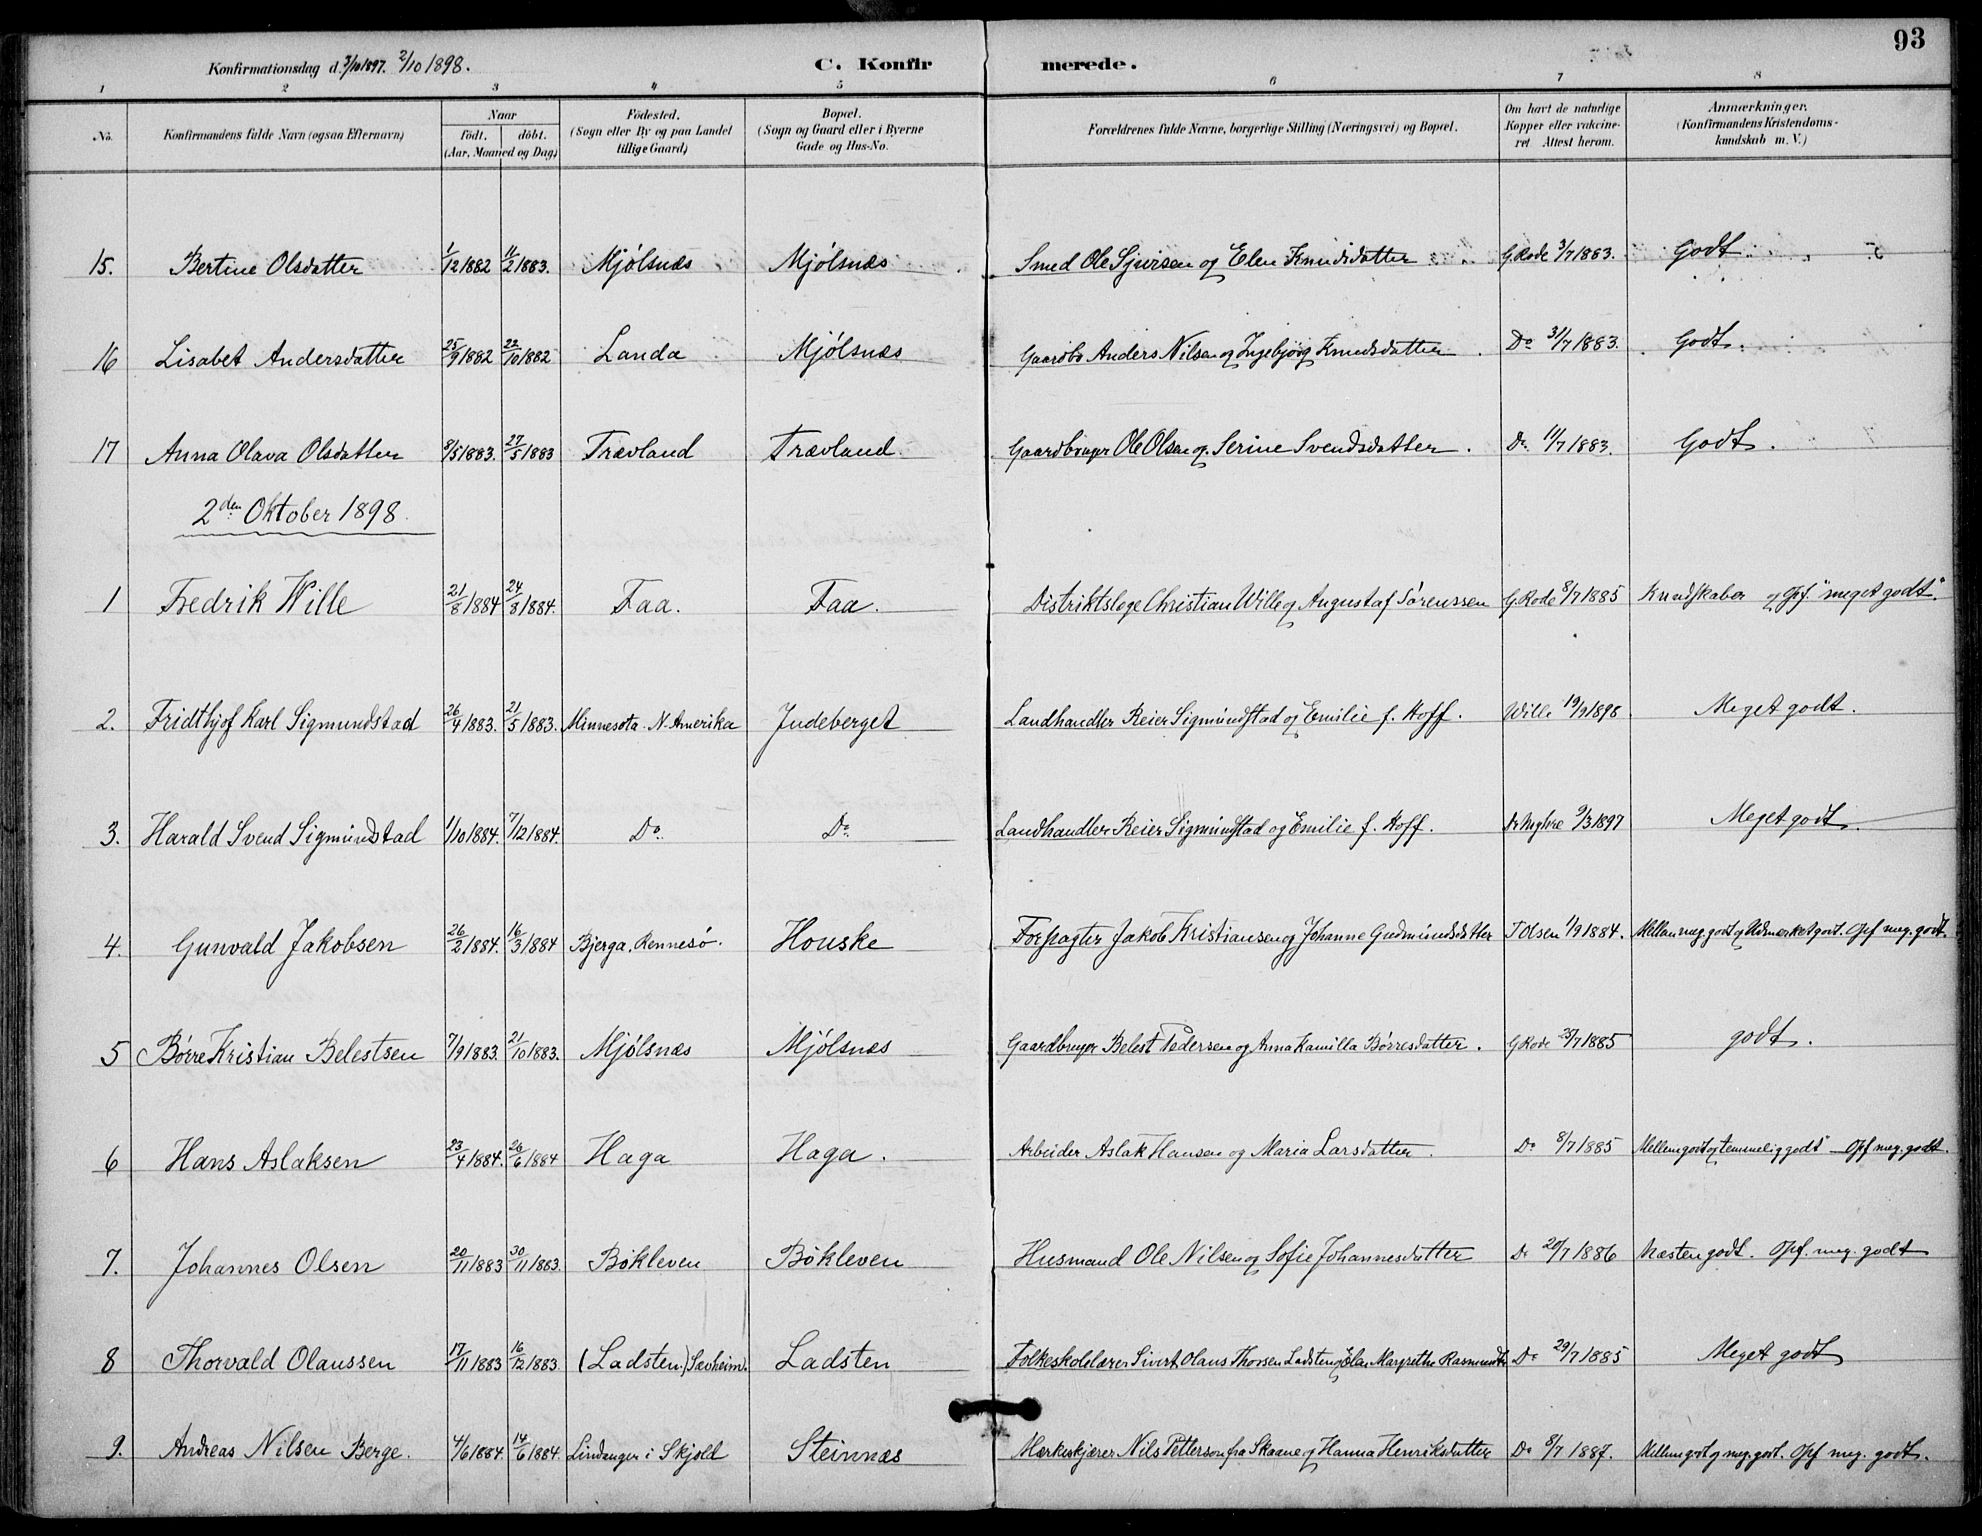 93
Konfirmationsdag d. 3/10 1897. 2/10 1898. C. Konfirmerede.
1 2 3 4 5 6 7 8
No. Konfirmandens fulde Navn (ogsaa Efternavn) Naar født. døbt. (Aar, Maaned og Dag) Fødested. (Sogn eller By og paa Landet tillige Gaard) Bopæl. (Sogn og Gaard eller i Byerne Gade og Hus-No. Forældrenes fulde Navne, borgerlige Stilling (Næringsvei) og Bopæl. Om havt de naturlige Kopper eller vakcineret Attest herom. Anmærkninger. (Konfirmandens Kristendomskundskab m. V.)
15. Bertine Olsdatter 1/12 1882 11/2 1883. Mjølsnæs Mjølsnæs Smed Ole Sjursen og Elen Knudsdatter G Rode 3/7 1883. Godt
16 Lisabet Andersdatter 25/9 1882 22/10 1882 Landa Mjølsnæs Gaardbr Anders Nilsen og Ingebjørg Knudsdatter. Do 31/7 1883. Godt.
17 Anna Olava Olsdatter 8/5 1883. 27/5 1883 Trævland Trævland Gaardbruger Ole Olsen og Serine Svendsdatter. Do 11/7 1883. Godt.
2den Oktober 1898.
1 Fredrik Wille 21/8 1884 24/8 1884. Faa. Faa. Distriktslæge Christian Wille og Augusta f Sørenssen G. Rode 8/7 1885 Kundskaber og Opf. "meget godt".
2. Fridthjof Karl Sigmundstad 26/4 1883. 21/5 1883. Minnesota. N. Amerika Judeberget Landhandler Reier Sigmundstad og Emilie f. Hoff. Wille 19/9 1898. Meget godt.
3. Harald Svend Sigmundstad 1/10 1884. 7/12 1884. Do Do Landhandler Reier Sigmundstad og Emilie f. Hoff. 9/3 1897 Meget godt.
4. Gunvald Jakobsen 26/2 1884. 16/3 1884 Bjerga, Rennesø. Houske Forpagter Jakob Kristiansen og Johanne Gudmundsdatter T Olsen 11/9 1884. Mellem meg. godt og Udmerket godt. Opf meg. godt.
5 Børre Kristian Belestsen 7/9 1883. 21/10 1883. Mjølsnæs Mjølsnæs Gaardbruger Belest Pedersen og Anna Kamilla Børresdatter. G Rode 25/7 1885 godt.
6 Hans Aslaksen 23/4 1884. 26/6 1884 Haga Haga. Arbeider Aslak Hansen og Maria Larsdatter. Do 8/7 1885 Mellem godt og temmelig godt Opf meg. godt.
7. Johannes Olsen 20/11 1883 30/11 1883. Bøkleven Bøkleven Husmand Ole Nilsen og Sofie Johannesdatter Do 20/7 1886 Næsten godt. Opf. meg. godt
8 Thorvald Olaussen 17/11 1883 16/12 1883. (Ladsten.) Sævheim. Ladsten Folkeskolelærer Sivert Olaus Thorsen Ladsten og Elen Margrethe Rasmusdtr Do 29/7 1885 Meget godt
9. Andreas Nilsen Berge. 4/6 1884. 14/6 1884. Lindanger i Skjold Steinnæs Mærkeskjærer Nils Petterson fra Skaane og Hanna Henriksdatter Do 8/7 1887. Mellem godt og meg. godt. Opf meg. godt.